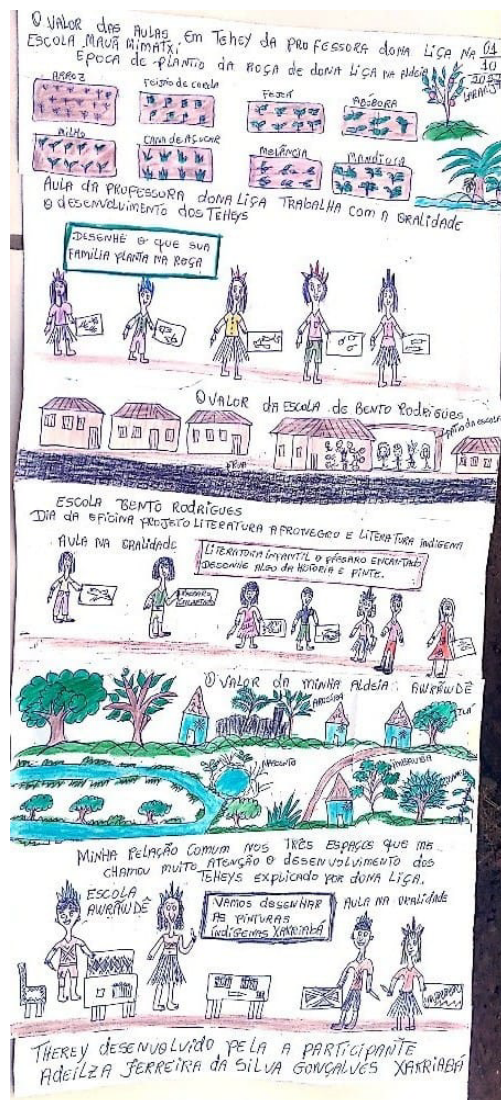 O VALOR DAS AULAS EM TEHEY DA PROFESSORA DONA LIÇA NA
ESCOLA MAUÁ MIMATXI
01
10
EPOCA DE PLANTIO DA ROÇA DE DONA LIÇA NA ALDEIA
LARANJA
ARROZ
FEIJÃO DE CORDA
FEJÃO
ABÓBORA
MILHO
CANA DE AÇUCAR
MELÂNCIA
MANDIOCA
AULA DA PROFESSORA DONA LIÇA TRABALHA COM A ORALIDADE
O DESENVOLVIMENTO DOS TEHEYS
DESENHE O QUE SUA
FAMILIA PLANTA NA ROÇA
O VALOR DA ESCOLA DE BENTO RODRIGUES
PATIO DA ESCOLA
RUA
ESCOLA BENTO RODRIGUES
DIA DA OFICINA PROJETO LITERATURA AFRONEGRO E LITERATURA INDIGENA
AULA NA ORALIDADE
LITERATURA INFANTIL O PÁSSARO ENCANTADO
DESENHE ALGO DA HISTORIA E PINTE.
PÁSSARO
ENCANTADO
O VALOR DA MINHA ALDEIA: AWRÃWDÊ
MINHA RELAÇÃO COMUM NOS TRÊS ESPAÇOS QUE ME
CHAMOU MUITO ATENÇÃO O DESENVOLVIMENTO DOS
TEHEYS EXPLICADO POR DONA LIÇA.
ESCOLA
AWRÃWDÊ
VAMOS DESENHAR
AS PINTURAS
INDÍGENAS XAKRIABÁ
AULA NA ORALIDADE
THEREY DESENVOLVIDO PELA A PARTICIPANTE
ADEILZA FERREIRA DA SILVA GONÇALVES XAKRIABÁ